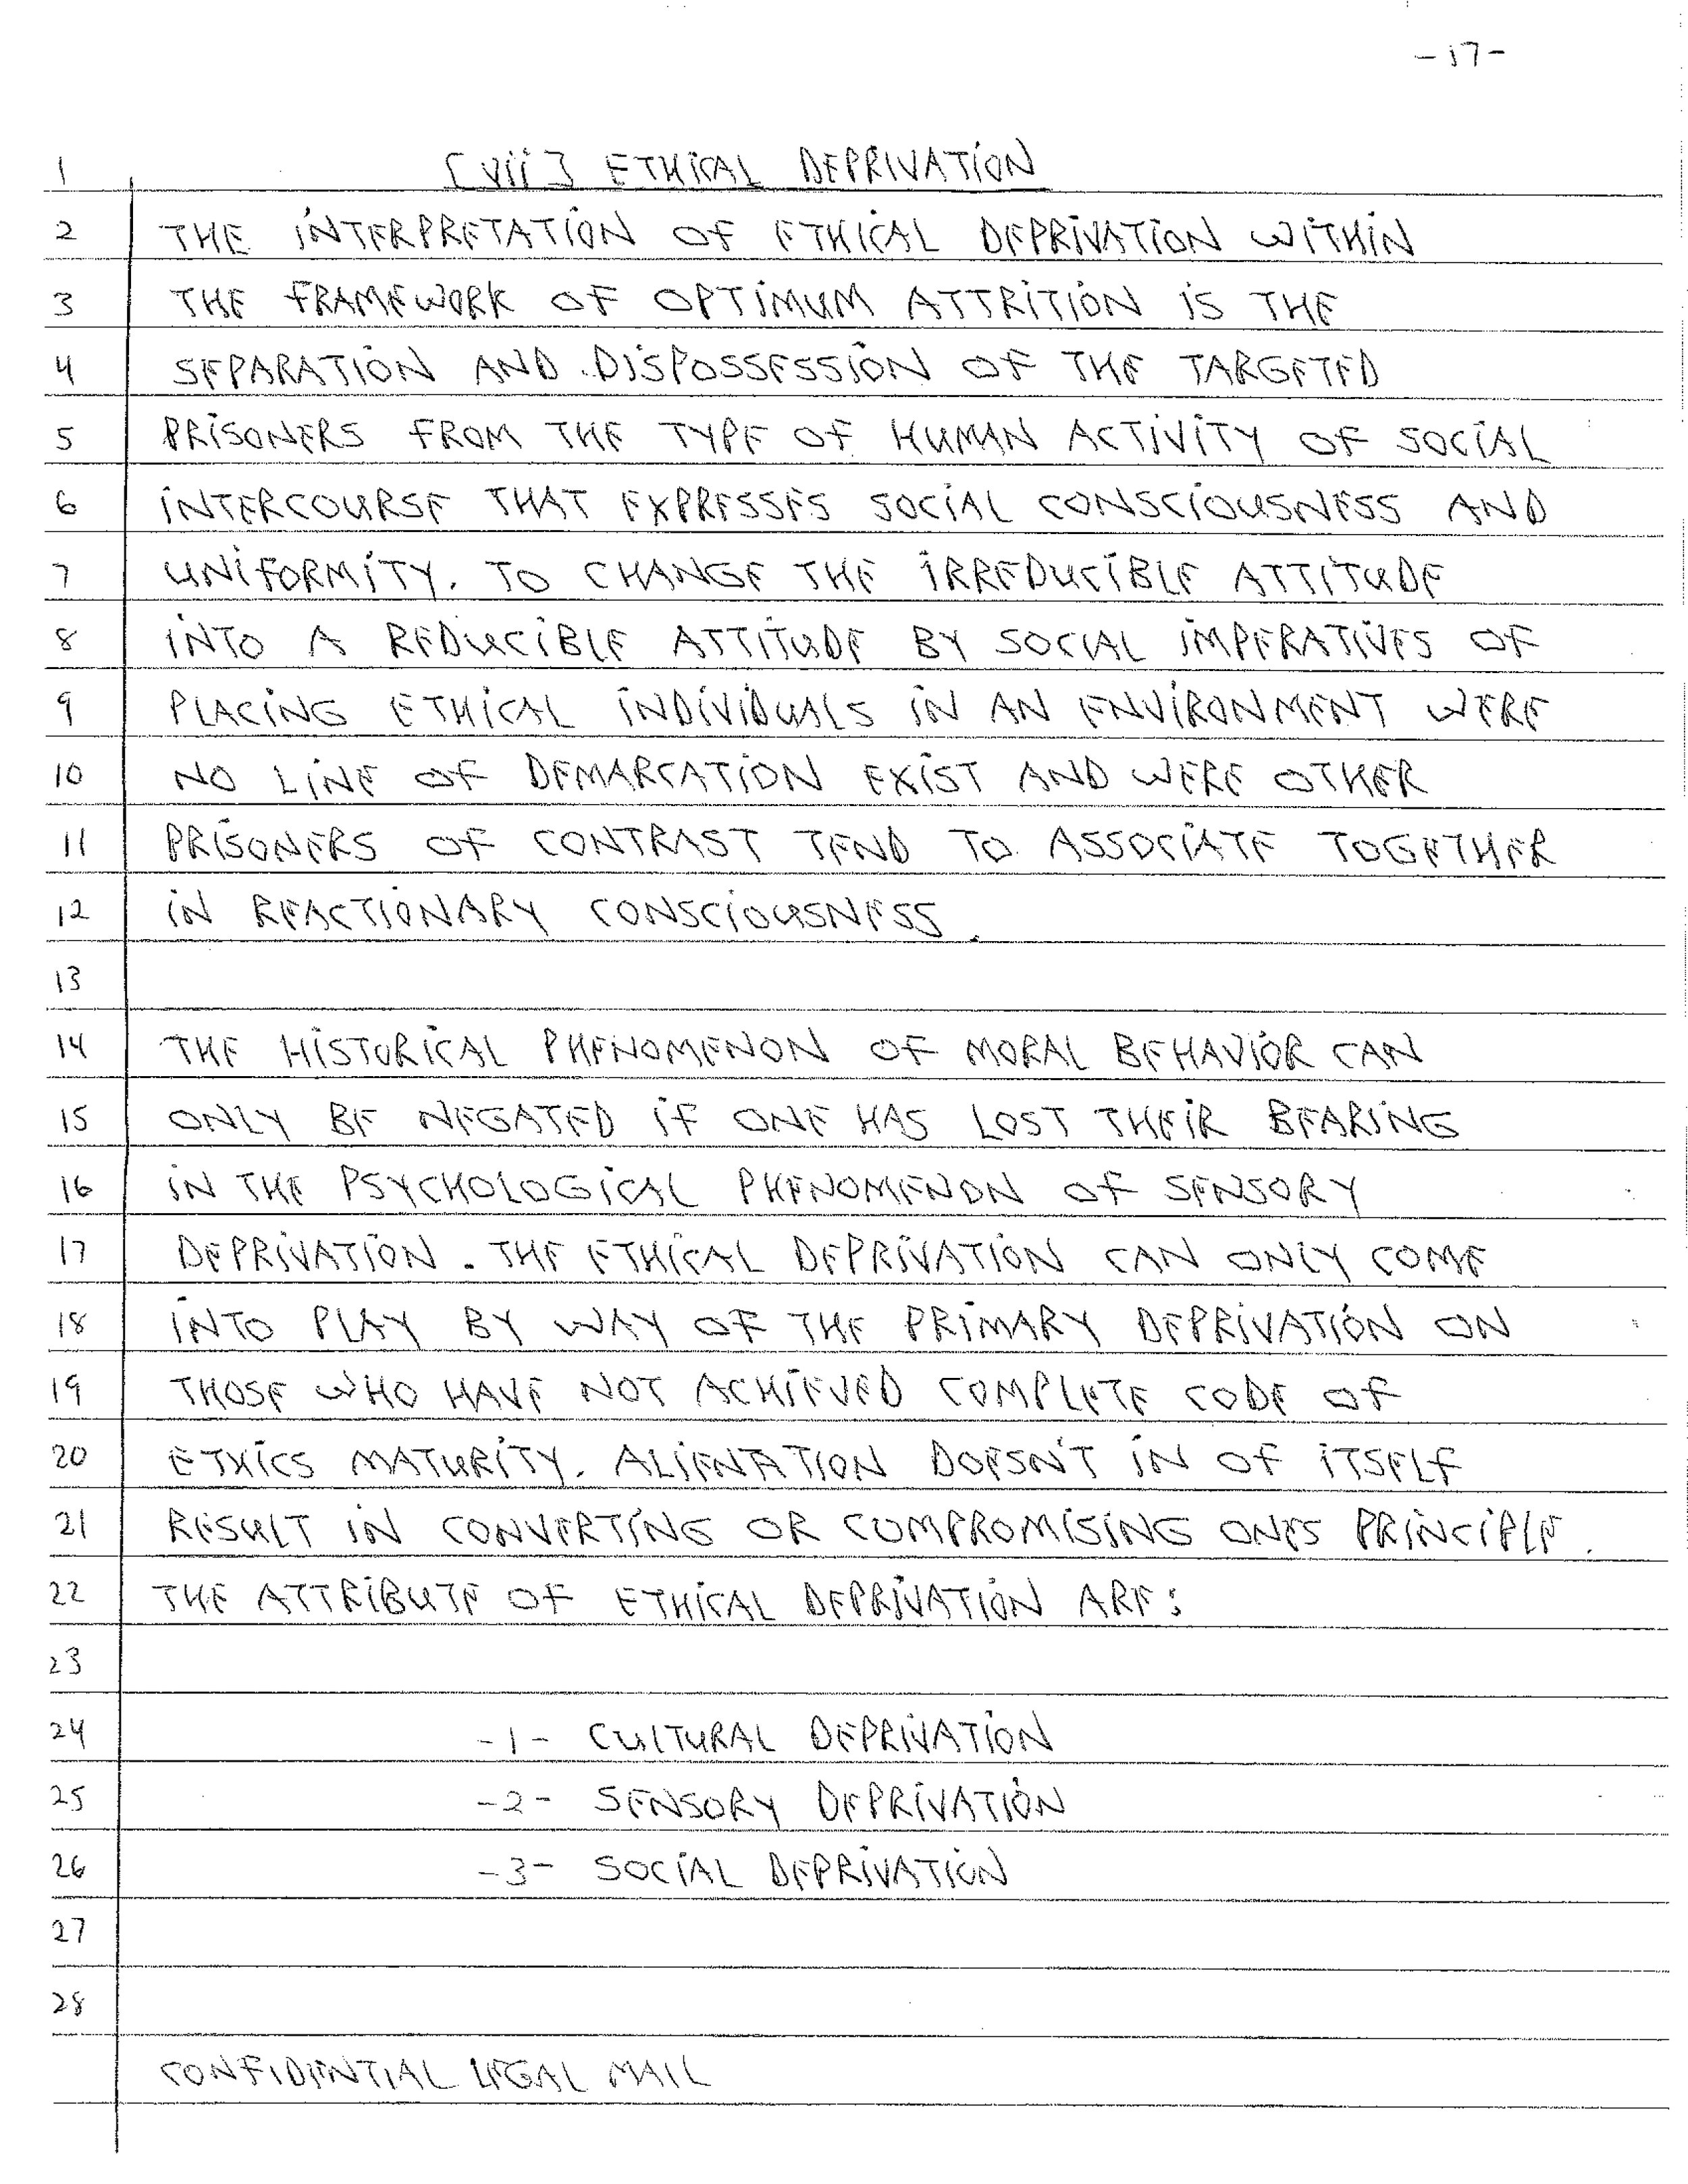 -17-
1 [vii] ETHICAL DEPRIVATION
2 THE INTERPRETATION OF ETHICAL DEPRIVATION WITHIN
3 THE FRAMEWORK OF OPTIMUM ATTRITION IS THE
4 SEPARATION AND DISPOSSESSION OF THE TARGETED
5 PRISONERS FROM THE TYPE OF HUMAN ACTIVITY OF SOCIAL
6 INTERCOURSE THAT EXPRESSES SOCIAL CONSCIOUSNESS AND
7 UNIFORMITY. TO CHANGE THE IRREDUCIBLE ATTITUDE
8 INTO A REDUCIBLE ATTITUDE BY SOCIAL IMPERATIVES OF
9 PLACING ETHICAL INDIVIDUALS IN AN ENVIRONMENT WERE
10 NO LINE OF DEMARCATION EXIST AND WERE OTHER
11 PRISONERS OF CONTRAST TEND TO ASSOCIATE TOGETHER
12 IN REACTIONARY CONSCIOUSNESS.
13
14 THE HISTORICAL PHENOMENON OF MORAL BEHAVIOR CAN
15 ONLY BE NEGATED IF ONE HAS LOST THEIR BEARING
16 IN THE PSYCHOLOGICAL PHENOMENON OF SENSORY
17 DEPRIVATION. THE ETHICAL DEPRIVATION CAN ONLY COME
18 INTO PLAY BY WAY OF THE PRIMARY DEPRIVATION ON
19 THOSE WHO HAVE NOT ACHIEVED COMPLETE CODE OF
20 ETHICS MATURITY. ALIENATION DOESN'T IN OF ITSELF
21 RESULT IN CONVERTING OR COMPROMISING ONES PRINCIPLE.
22 THE ATTRIBUTE OF ETHICAL DEPRIVATION ARE:
23
24 -1- CULTURAL DEPRIVATION
25 -2- SENSORY DEPRIVATION
26 -3- SOCIAL DEPRIVATION
27
28
CONFIDENTIAL LEGAL MAIL